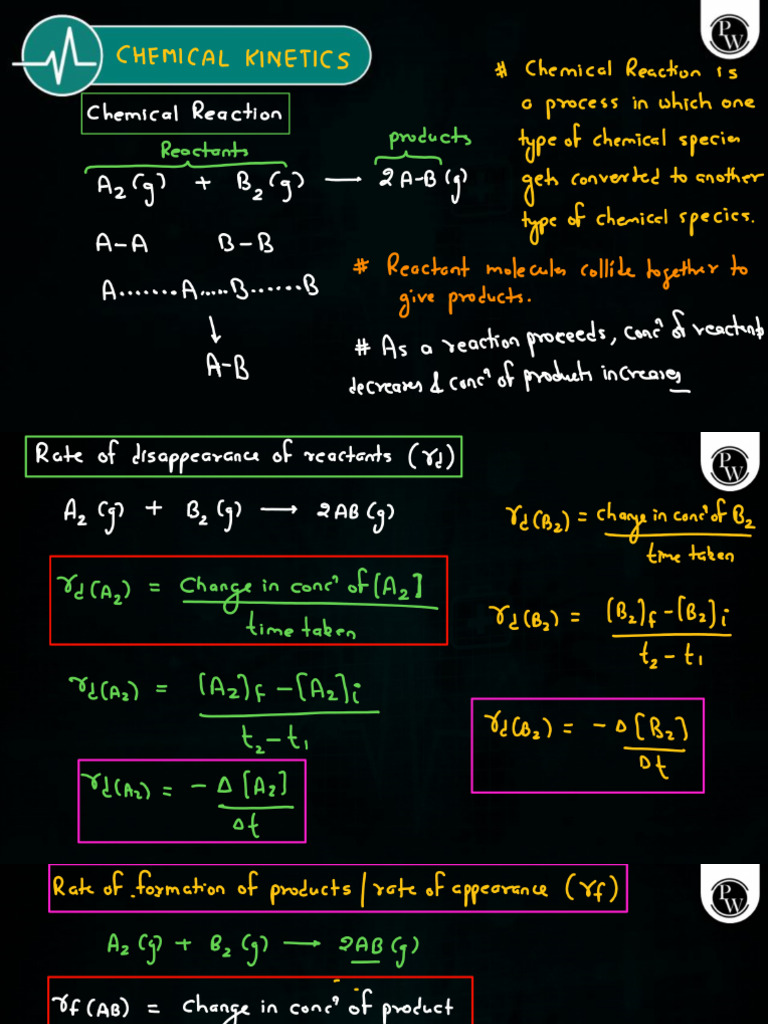 CHEMICAL KINETICS
PW
Chemical Reaction
# Chemical Reaction is
a process in which one
type of chemical species
gets converted to another
type of chemical species.
Reactants products
A₂(g) + B₂(g) — 2A-B(g)
A-A B-B
A.......A.....B......B
↓
A-B
# Reactant molecules collide together to
give products.
# As a reaction proceeds, concⁿ of reactants
decreases & concⁿ of products increases
Rate of disappearance of reactants (rd)
PW
A₂(g) + B₂(g) → 2AB(g)
rd(A₂) = Change in concⁿ of [A₂]
time taken
rd(A₂) = [A₂]f - [A₂]i
t₂-t₁
rd(A₂) = - Δ[A₂]
Δt
rd(B₂) = change in concⁿ of B₂
time taken
rd(B₂) = [B₂]f - [B₂]i
t₂-t₁
rd(B₂) = - Δ[B₂]
Δt
Rate of formation of products / rate of appearance (rf)
PW
A₂(g) + B₂(g) → 2AB(g)
rf(AB) = Change in concⁿ of product